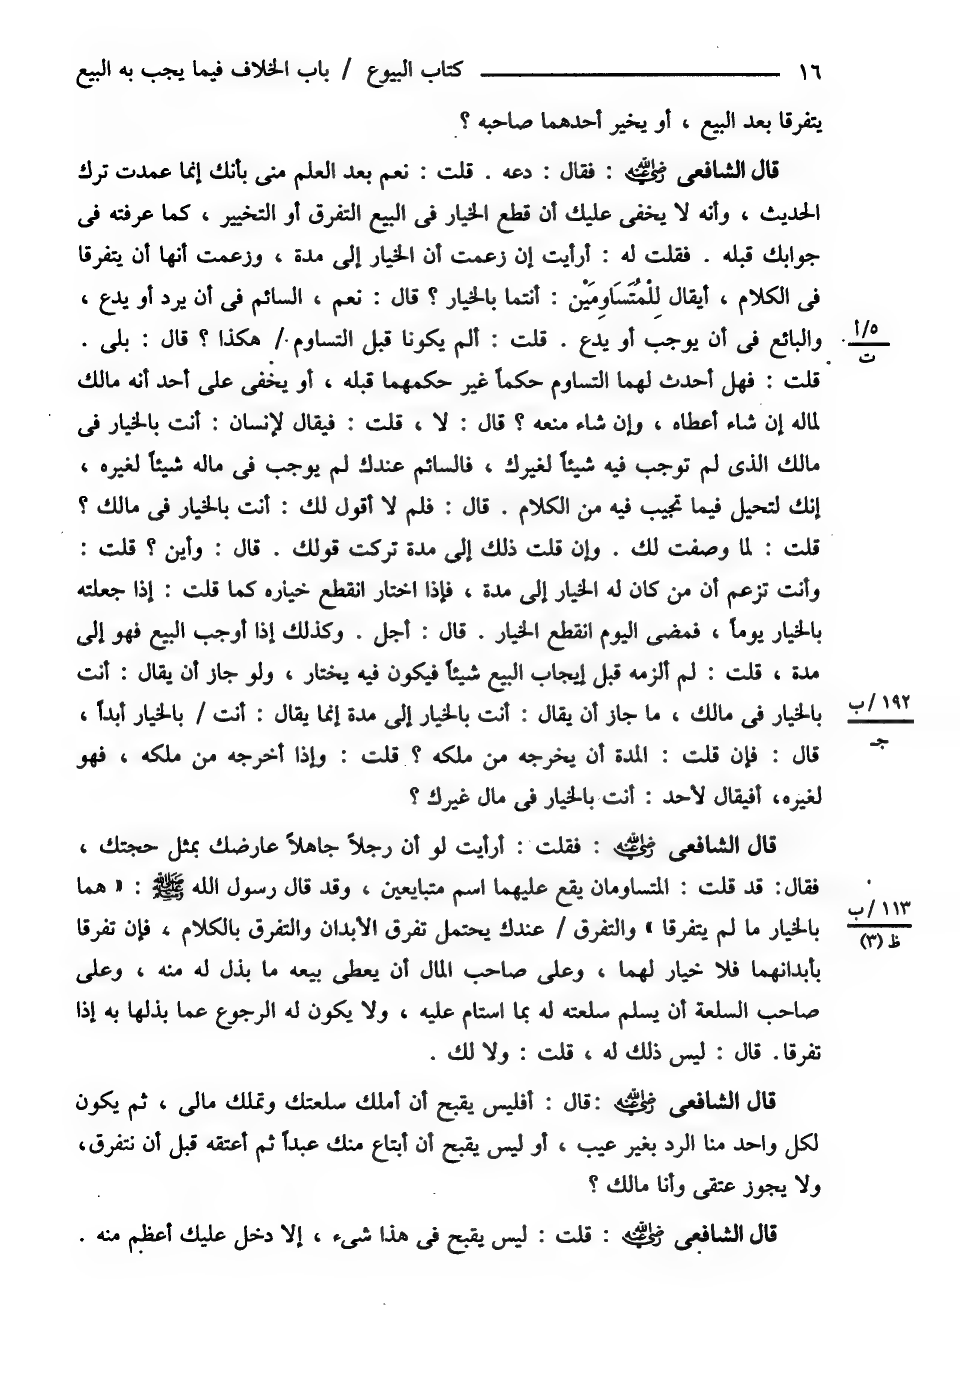 ١٦ ــــــــــــ كتاب البيوع / باب الخلاف فيما يجب به البيع
يتفرقا بعد البيع ، أو يخير أحدهما صاحبه ؟
قال الشافعى رضي الله عنه : فقال : دعه . قلت : نعم بعد العلم منى بأنك إنما عمدت ترك
الحديث ، وأنه لا يخفى عليك أن قطع الخيار فى البيع التفرق أو التخيير ، كما عرفته فى
جوابك قبله . فقلت له : أرأيت إن زعمت أن الخيار إلى مدة ، وزعمت أنها أن يتفرقا
فى الكلام ، أيقال لِلْمُتَسَاوِمَيْنِ : أنتما بالخيار ؟ قال : نعم ، السائم فى أن يرد أو يدع ،
والبائع فى أن يوجب أو يدع . قلت : ألم يكونا قبل التساوم / هكذا ؟ قال : بلى .
٥/أ
ت
قلت : فهل أحدث لهما التساوم حكماً غير حكمهما قبله ، أو يخفى على أحد أنه مالك
لماله إن شاء أعطاه ، وإن شاء منعه ؟ قال : لا ، قلت : فيقال لإنسان : أنت بالخيار فى
مالك الذى لم توجب فيه شيئاً لغيرك ، فالسائم عندك لم يوجب فى ماله شيئاً لغيره ،
إنك لتحيل فيما تجيب فيه من الكلام . قال : فلم لا أقول لك : أنت بالخيار فى مالك ؟
قلت : لما وصفت لك . وإن قلت ذلك إلى مدة تركت قولك . قال : وأين ؟ قلت :
وأنت تزعم أن من كان له الخيار إلى مدة ، فإذا اختار انقطع خياره كما قلت : إذا جعلته
بالخيار يوماً ، فمضى اليوم انقطع الخيار . قال : أجل . وكذلك إذا أوجب البيع فهو إلى
مدة ، قلت : لم ألزمه قبل إيجاب البيع شيئاً فيكون فيه يختار ، ولو جاز أن يقال : أنت
بالخيار فى مالك ، ما جاز أن يقال : أنت بالخيار إلى مدة إنما يقال : أنت / بالخيار أبداً ،
١٩٢/ب
جـ
قال : فإن قلت : المدة أن يخرجه من ملكه ؟ قلت : وإذا أخرجه من ملكه ، فهو
لغيره، أفيقال لأحد : أنت بالخيار فى مال غيرك ؟
قال الشافعى رضي الله عنه : فقلت : أرأيت لو أن رجلاً جاهلاً عارضك بمثل حجتك ،
فقال: قد قلت : المتساومان يقع عليهما اسم متبايعين ، وقد قال رسول الله ﷺ : « هما
بالخيار ما لم يتفرقا » والتفرق / عندك يحتمل تفرق الأبدان والتفرق بالكلام ، فإن تفرقا
١١٣/ب
ظ (٣)
بأبدانهما فلا خيار لهما ، وعلى صاحب المال أن يعطى بيعه ما بذل له منه ، وعلى
صاحب السلعة أن يسلم سلعته له بما استام عليه ، ولا يكون له الرجوع عما بذلها به إذا
تفرقا. قال : ليس ذلك له ، قلت : ولا لك .
قال الشافعى رضي الله عنه :قال : أفليس يقبح أن أملك سلعتك وتملك مالى ، ثم يكون
لكل واحد منا الرد بغير عيب ، أو ليس يقبح أن أبتاع منك عبداً ثم أعتقه قبل أن نتفرق،
ولا يجوز عتقى وأنا مالك ؟
قال الشافعى رضي الله عنه : قلت : ليس يقبح فى هذا شىء ، إلا دخل عليك أعظم منه .